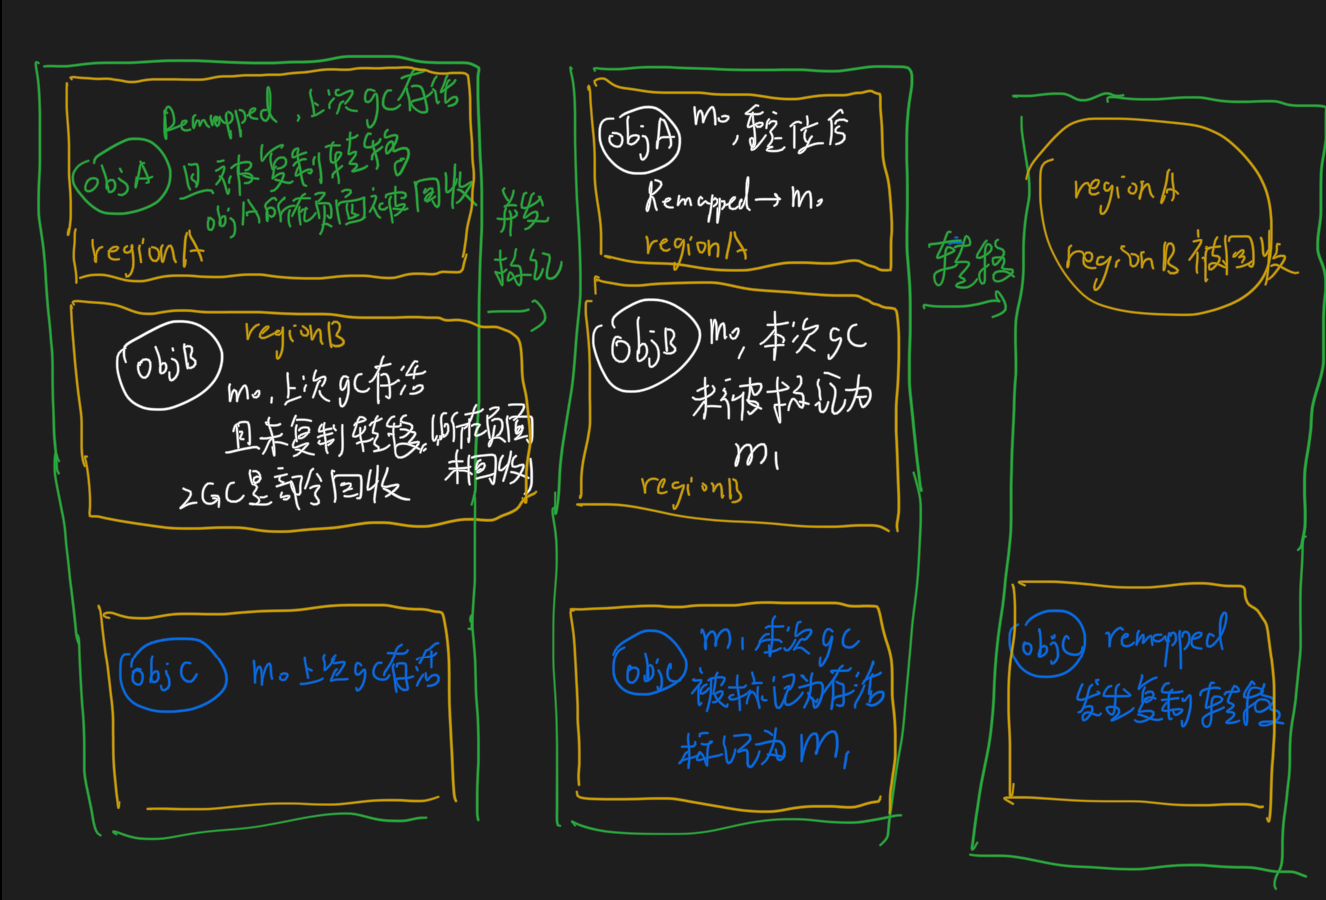 Remapped,上次gc存活
objA 且被复制转移
objA所在页面被回收
regionA
objB
regionB
m0,上次gc存活
且未复制转移,(所在页面
未回收)
ZGC是部分回收
objC
m0上次gc存活
并发
标记
objA
m0,重定位后
Remapped→m0
regionA
objB
m0,本次gc
未被标记为
m1
regionB
objC
m1本次gc
被标记为存活
标记为m1
转移
regionA
regionB被回收
objC
remapped
发生复制转移